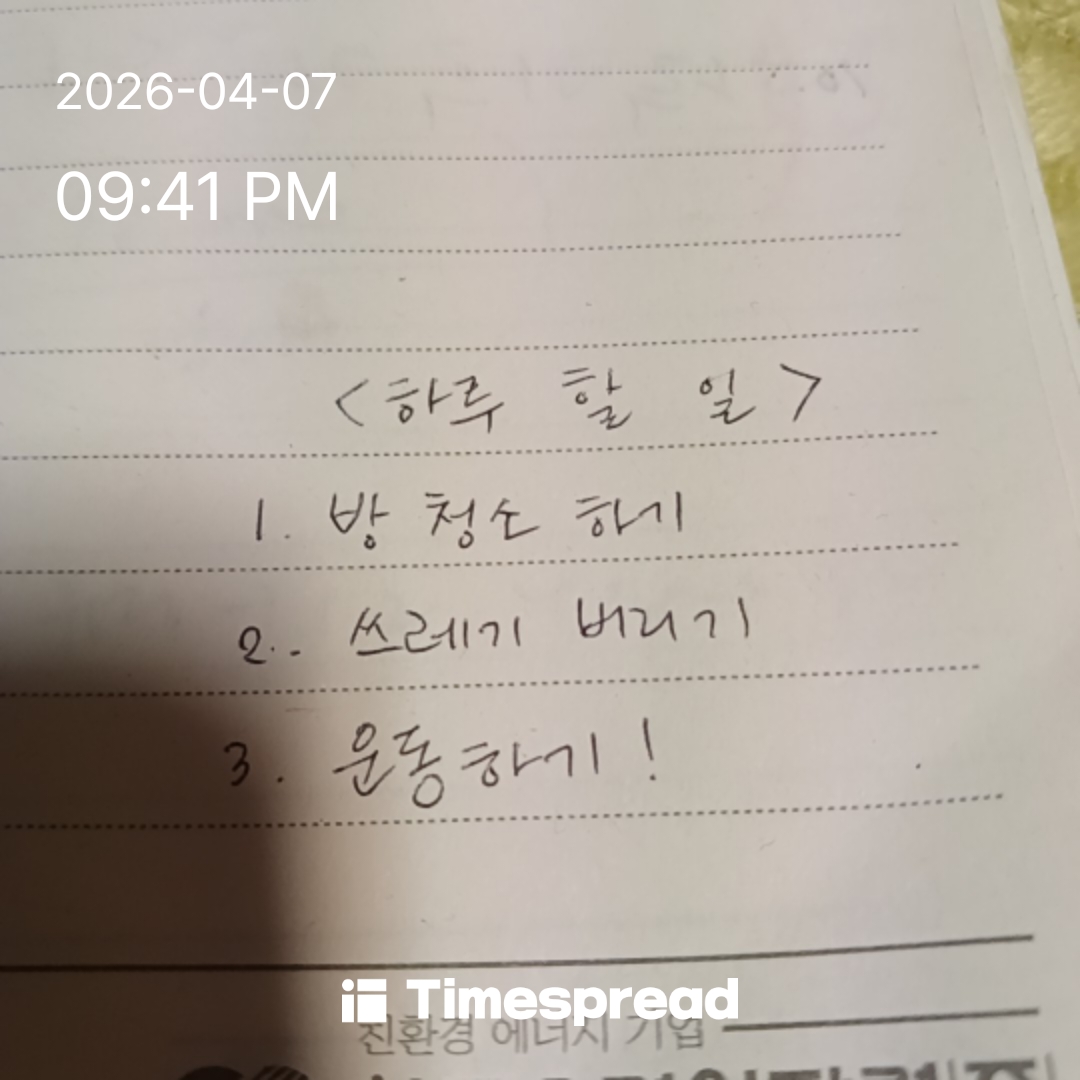 2026-04-07
09:41 PM
<하루 할 일>
1. 방 청소 하기
2. 쓰레기 버리기
3. 운동하기!
Timespread
친환경 에너지 기업